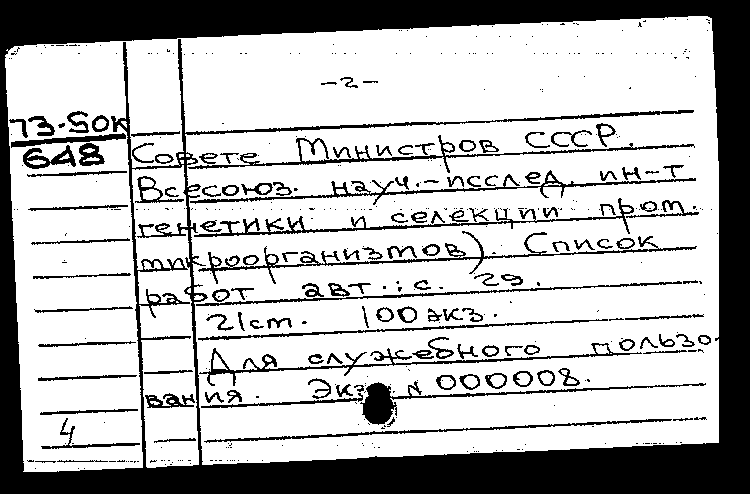 -2-
73-50к
648
Совете Министров СССР.
Всесоюз. науч.-исслед. ин-т
генетики и селекции пром.
микроорганизмов). Список
работ авт.: с. 29.
21 см. 100 экз.
Для служебного пользо-
вания. Экз. N 000008.
4